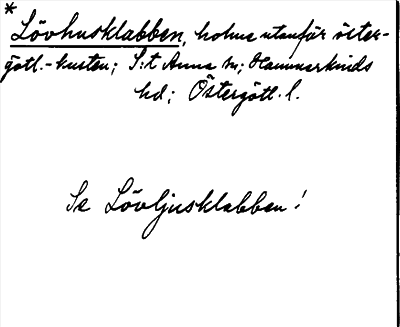 * Lövhusklabben, holme utanför öster-
götl.-kusten; S:t Anna sn; Hammarkinds
hd; Östergötl. l.
Se Lövljusklabben!